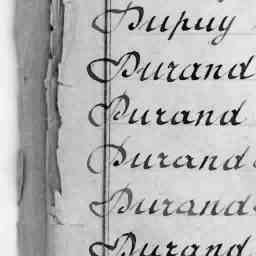 Dupuy
Durand
Durand
Durand
Durand
Durand